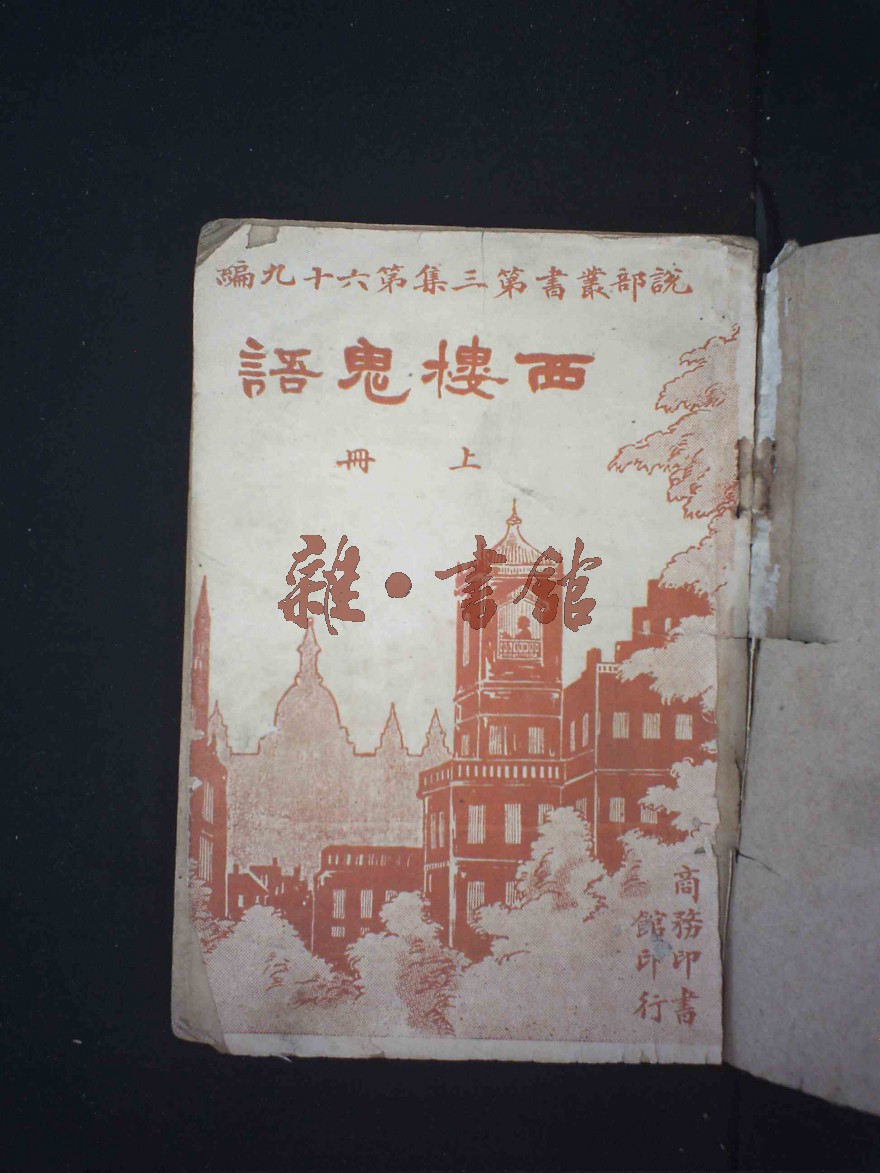 說部叢書第三集第六十九編
西樓鬼語
上冊
雜·書館
商務印書
館印行